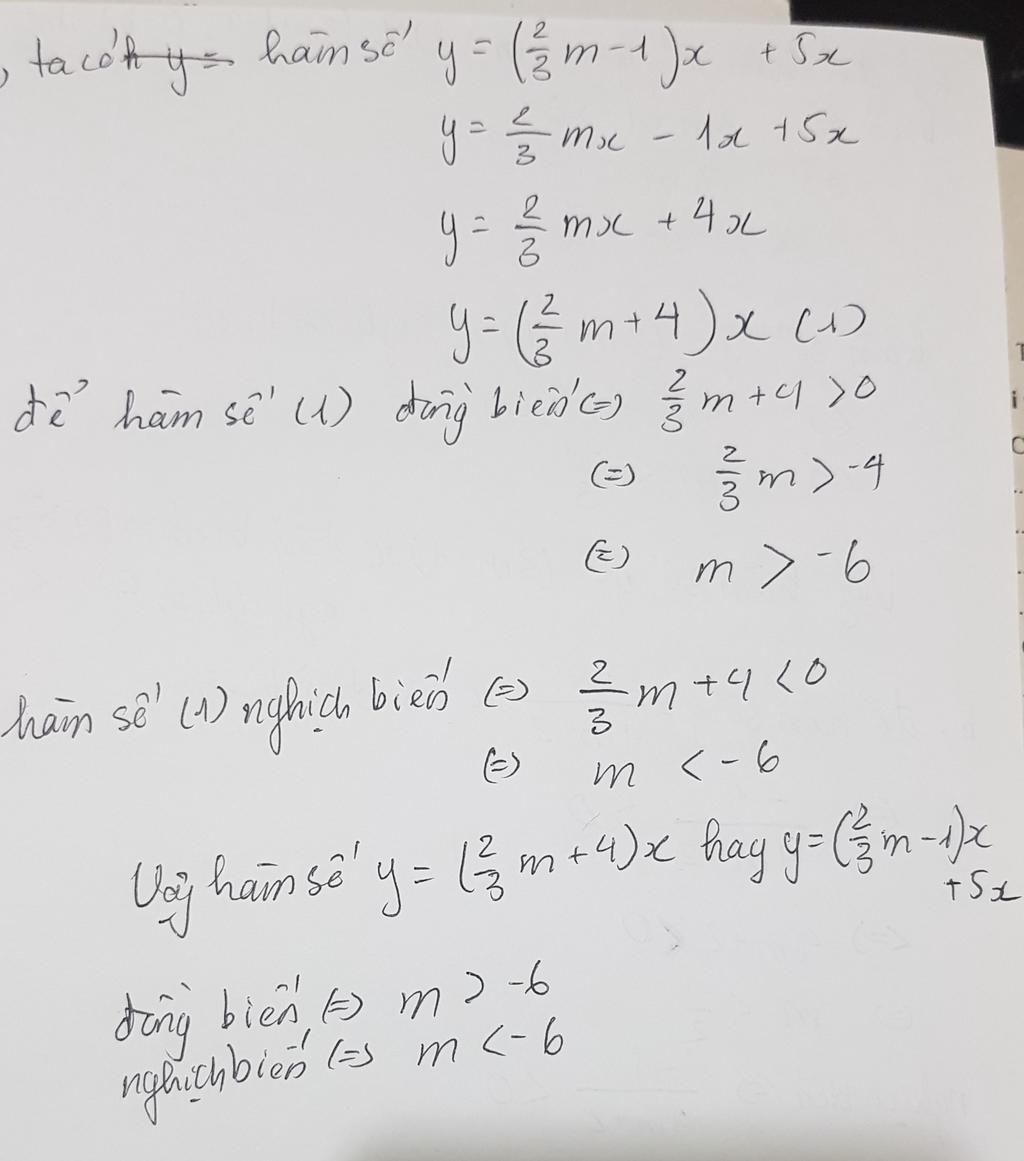 , ta có h y = hàm số y = (2/3 m - 1)x + 5x
y = 2/3 mx - 1x + 5x
y = 2/3 mx + 4x
y = (2/3 m + 4)x (1)
để hàm số (1) đồng biến (=) 2/3 m + 4 > 0
(=) 2/3 m > -4
(=) m > -6
hàm số (1) nghịch biến (=) 2/3 m + 4 < 0
(=) m < -6
Vậy hàm số y = (2/3 m + 4)x hay y = (2/3 m - 1)x
+ 5x
đồng biến (=) m > -6
nghịch biến (=) m < -6